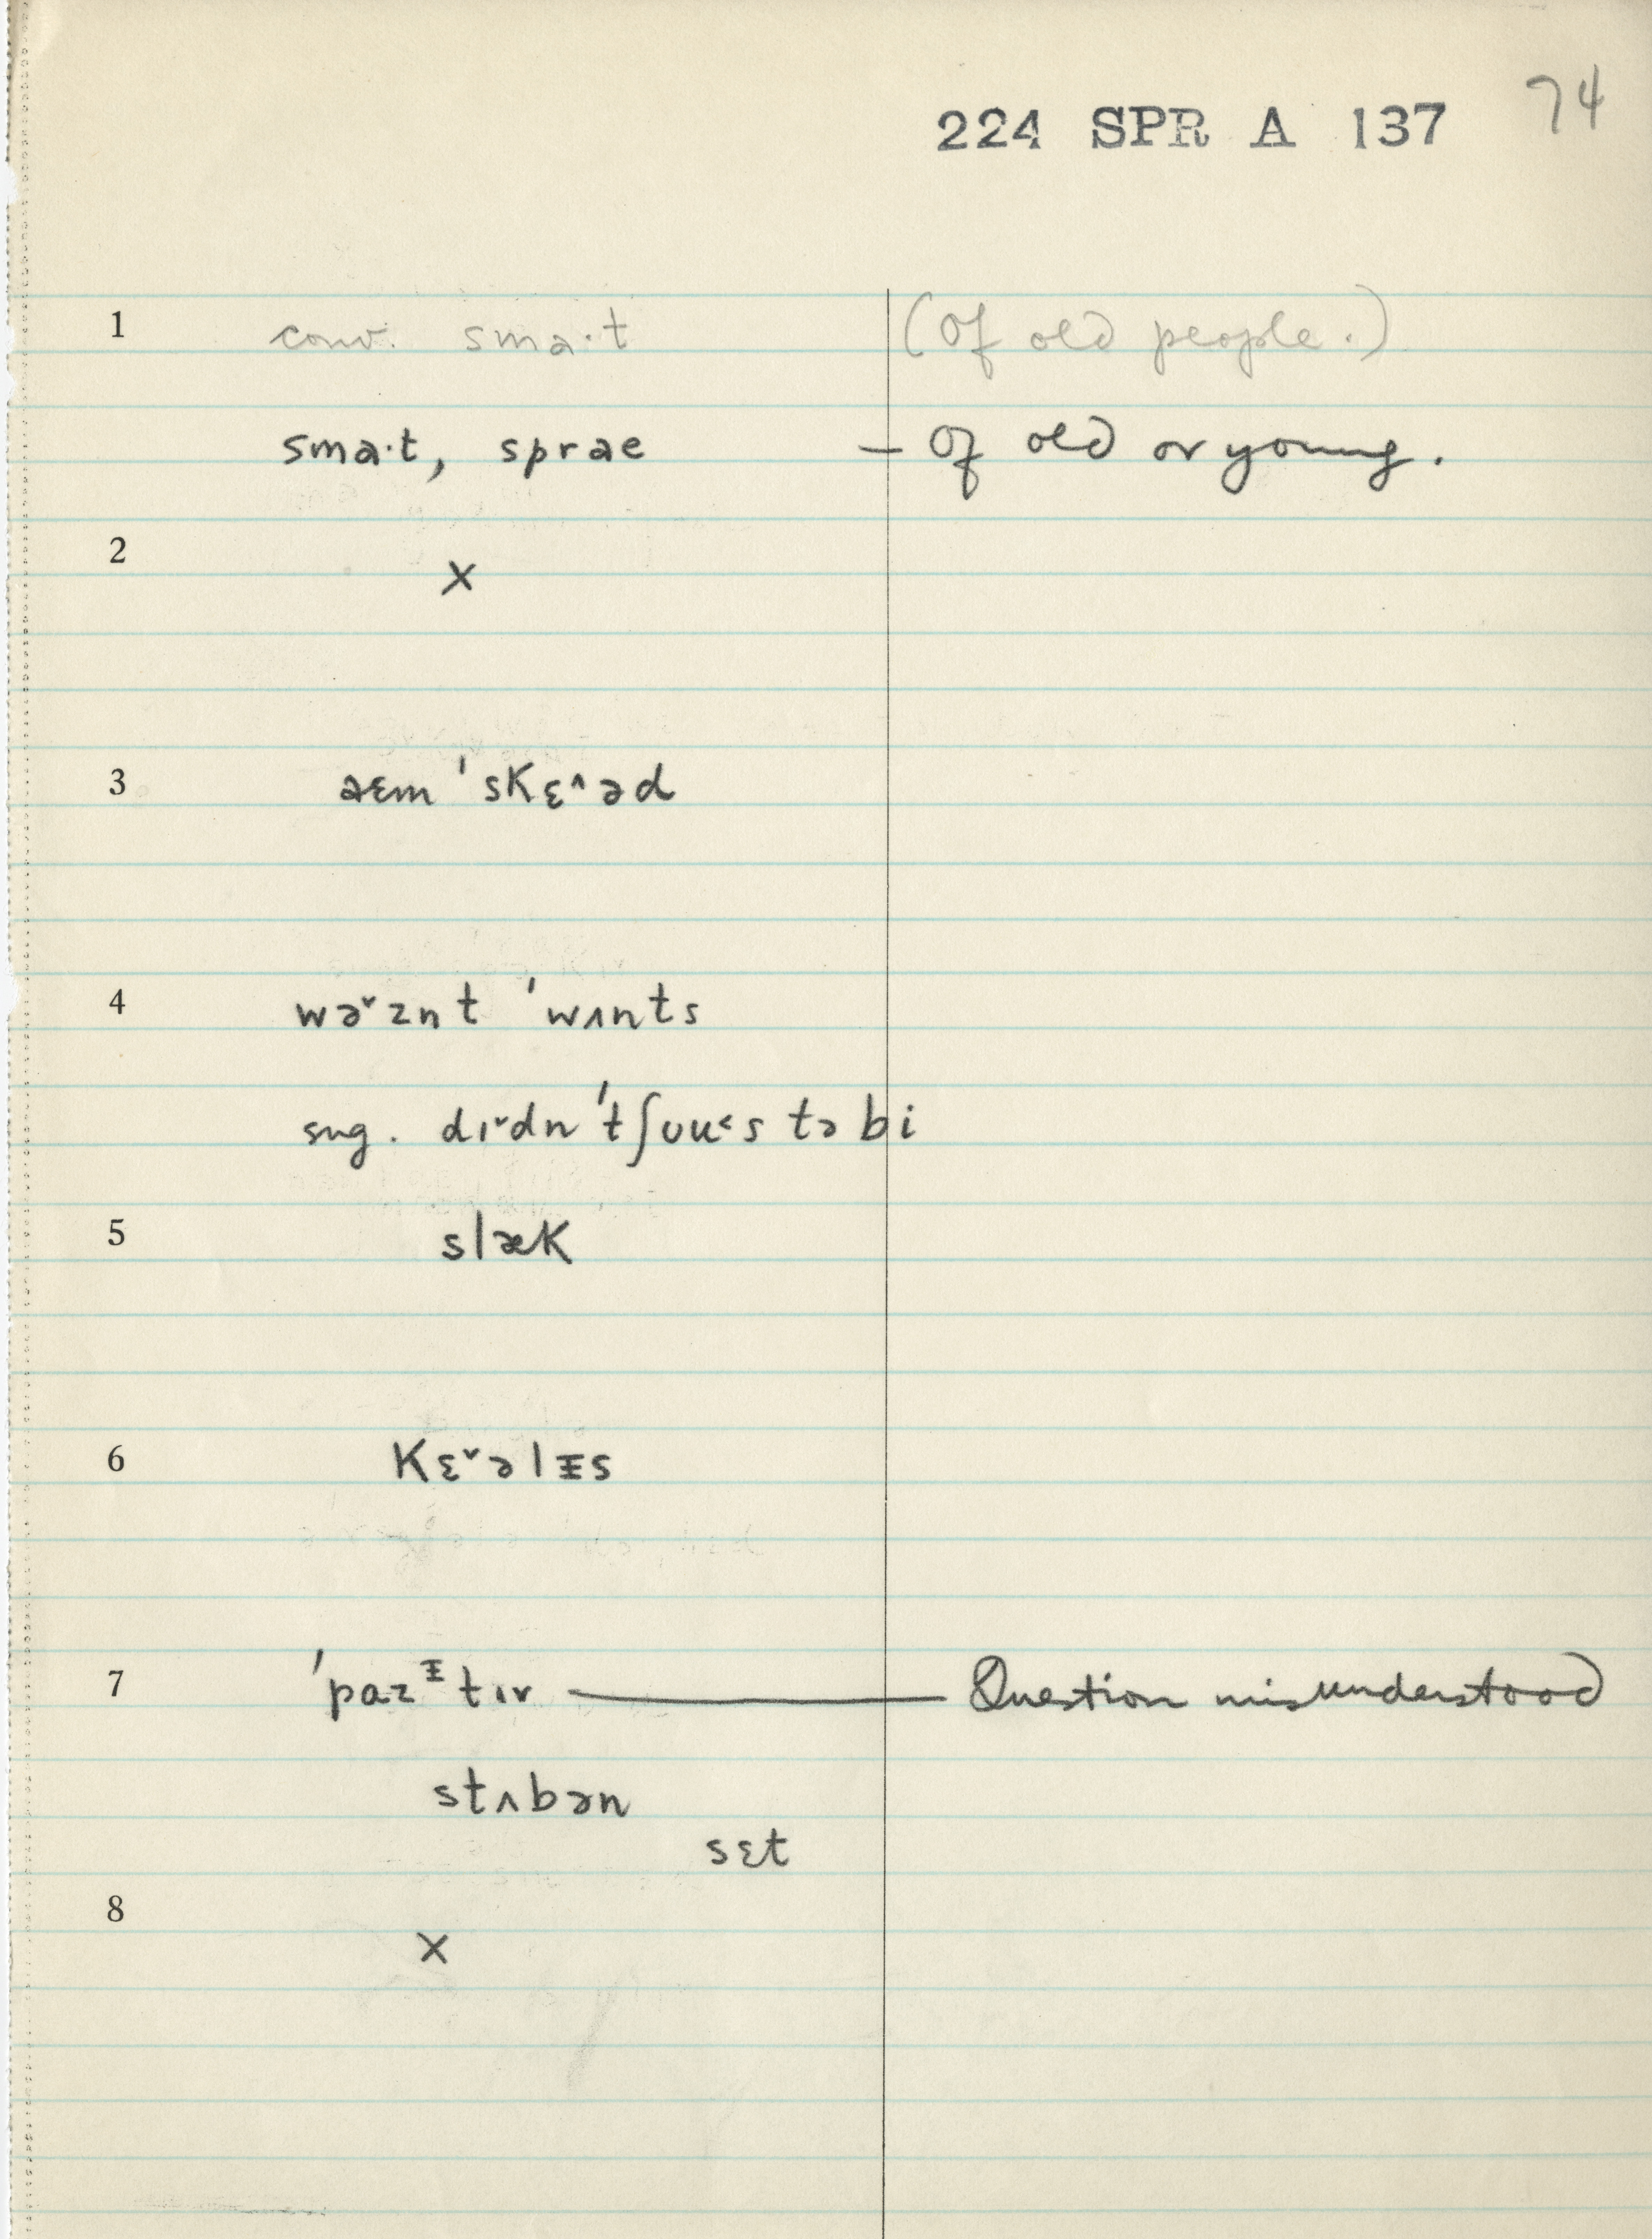 224 SPR A 137 74
1 conv. sma·t (Of old people.)
sma·t, sprae — Of old or young.
2 ×
3 aɛm ˈskɛ˄əd
4 wə˅znt ˈwʌnts
sug. dɪ˅dn ˈtʃuu˂s tə bi
5 slæk
6 kɛ˅əlᵻs
7 ˈpazᵻtɪv — Question misunderstood
stʌbən
sɛt
8 ×